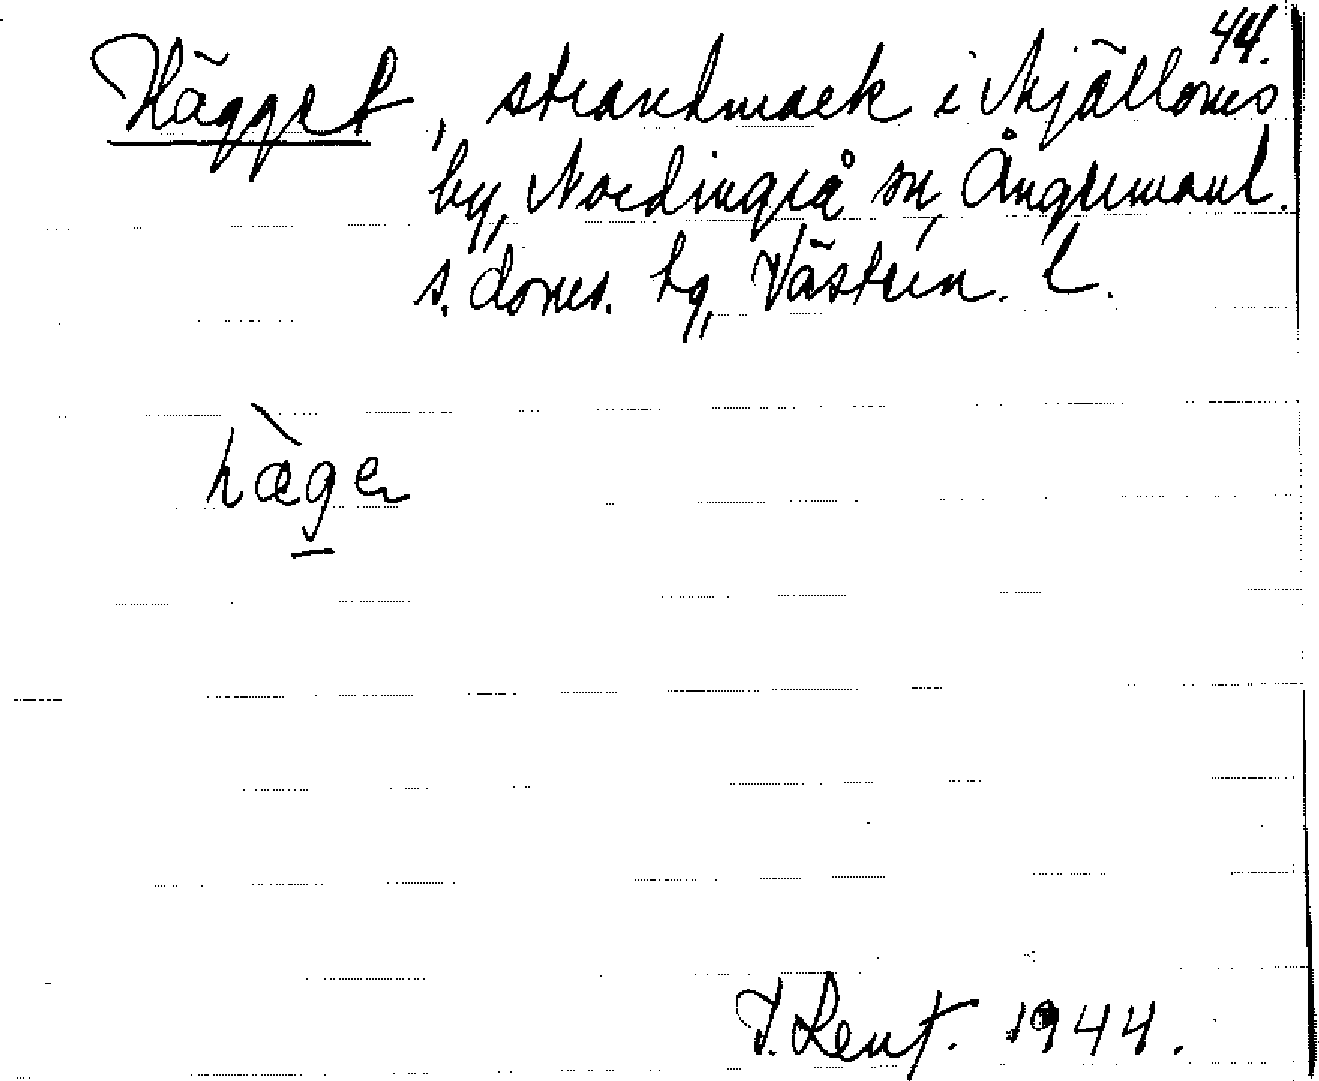 44.
Hägget, strandmark i Mjälloms
by, Nordingrå sn, Ångermanl.
s. doms. hg, Västern. l.
hàge
J. Lenf. 1944.